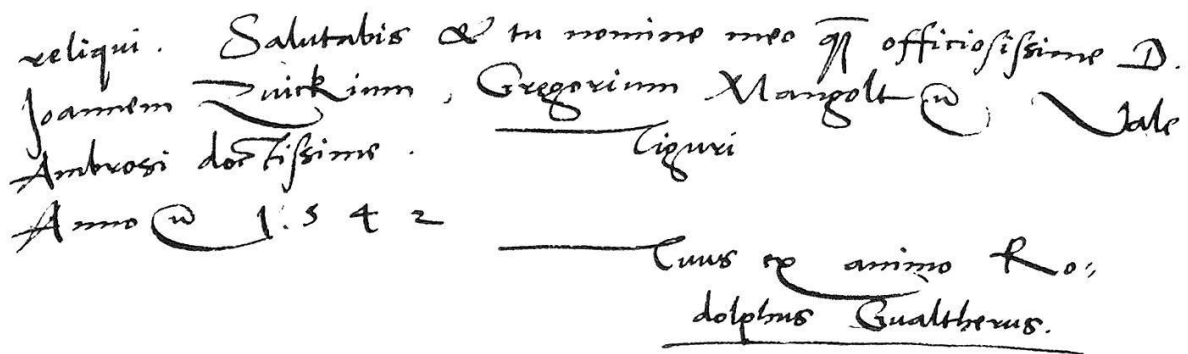 reliqui. Salutabis & tu nomine meo officiosissime D.
Joannem Zuickium, Gregorium Mangolt Vale
Ambrosi doctissime. Tiguri
Anno 1.5 4 2
Tuus ex animo Ro⸗
dolphus Gualtherus.